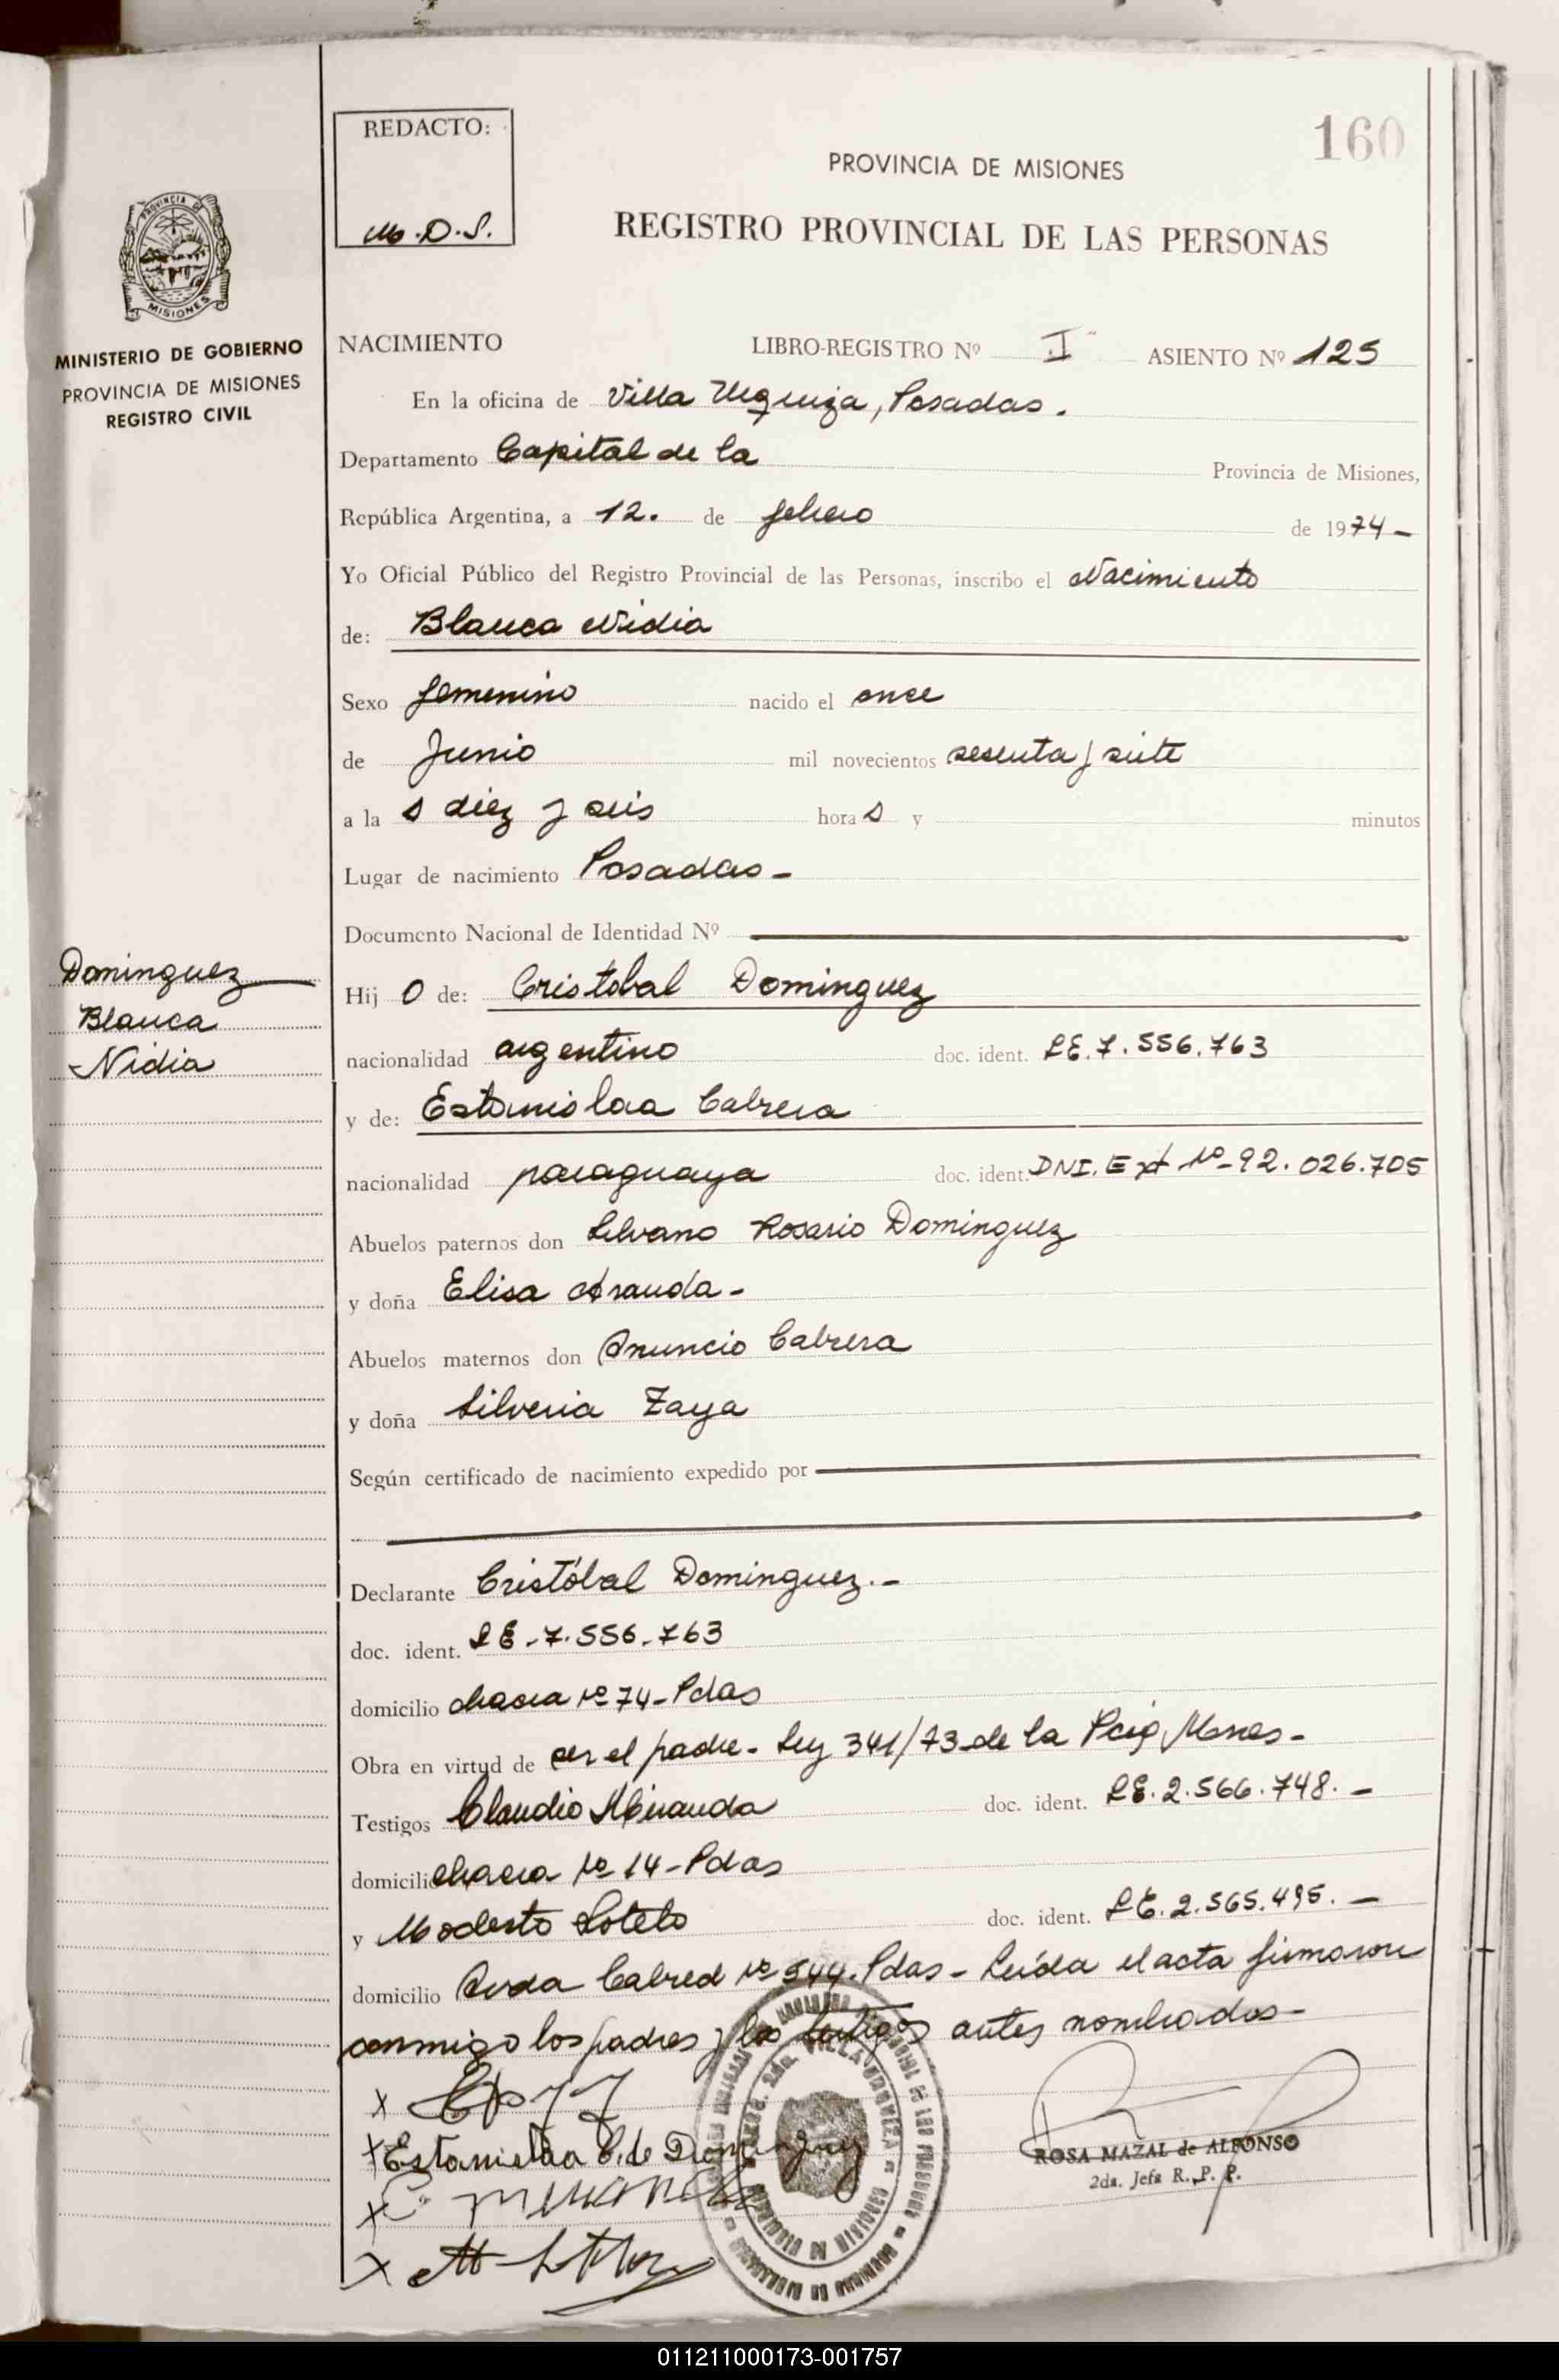 160
REDACTO:
M.D.S.
PROVINCIA DE MISIONES
REGISTRO PROVINCIAL DE LAS PERSONAS
PROVINCIA DE
MISIONES
MINISTERIO DE GOBIERNO
PROVINCIA DE MISIONES
REGISTRO CIVIL
NACIMIENTO LIBRO-REGISTRO Nº I ASIENTO Nº 125
En la oficina de Villa Urquiza, Posadas.
Departamento Capital de la Provincia de Misiones,
República Argentina, a 12. de febrero de 1974-
Yo Oficial Público del Registro Provincial de las Personas, inscribo el Nacimiento
de: Blanca Nidia
Sexo femenino nacido el once
de Junio mil novecientos sesenta y siete
a la s diez y seis hora s y minutos
Lugar de nacimiento Posadas-
Documento Nacional de Identidad Nº
Dominguez
Blanca
Nidia
Hij o de: Cristobal Dominguez
nacionalidad argentino doc. ident. LE.7.556.763
y de: Estanislaa Cabrera
nacionalidad paraguaya doc. ident. DNI. Ext Nº-92.026.705
Abuelos paternos don Silvano Rosario Dominguez
y doña Elisa Aranda-
Abuelos maternos don Anuncio Cabrera
y doña Silveria Zaya
Según certificado de nacimiento expedido por
Declarante Cristóbal Dominguez.-
doc. ident. LE-7.556-763
domicilio chacra Nº 74-Pdas
Obra en virtud de ser el padre- Ley 341/73-de la Pcia Mnes-
Testigos Claudio Miranda doc. ident. LE.2.566.748.-
domicilio chacra Nº 14-Pdas
y Modesto Sotelo doc. ident. LE.2.565.495.-
domicilio Avda Cabred Nº 544. Pdas- Leída el acta firmaron
conmigo los padres y los testigos antes nombrados-
x
x Estanislaa C. de Dominguez
x
x
VILLA URQUIZA
ROSA MAZAL de ALFONSO
2da. Jefa R. P. P.
011211000173-001757